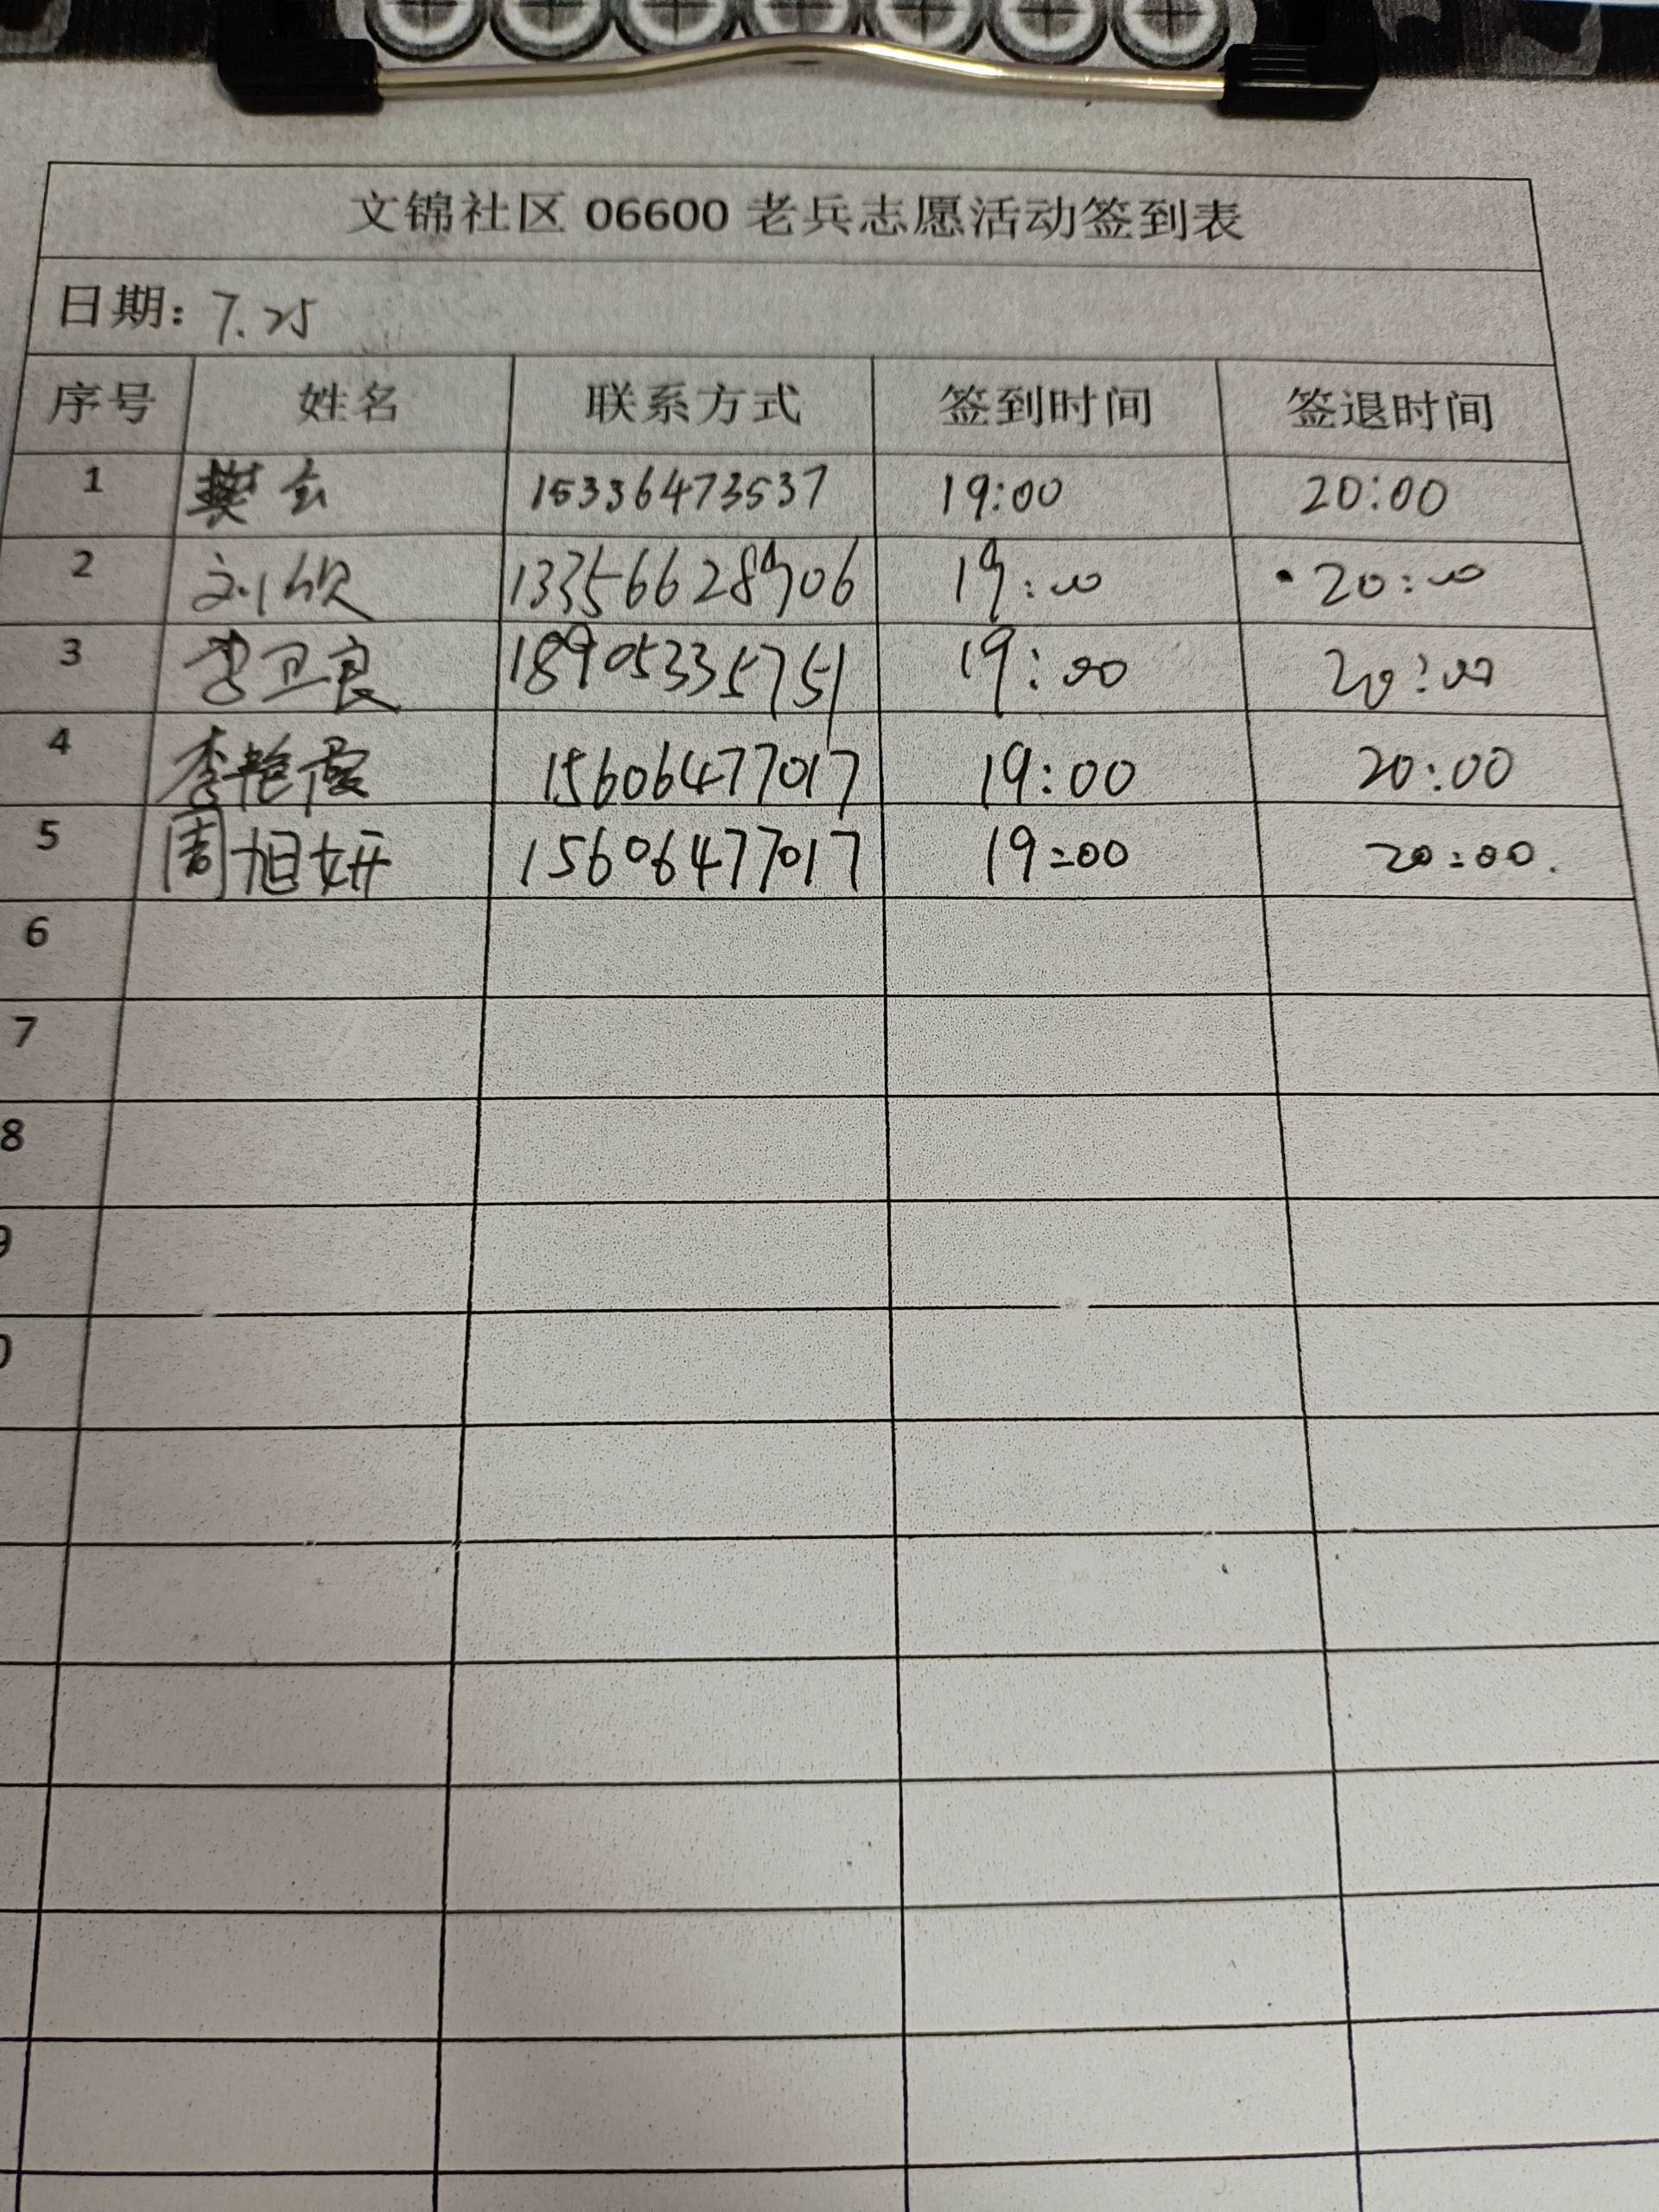 文锦社区 06600 老兵志愿活动签到表
日期: 7.25
序号 姓名 联系方式 签到时间 签退时间
1 樊会 15336473537 19:00 20:00
2 刘欣 13356628906 19:00 20:00
3 李卫良 18905335751 19:00 20:00
4 李艳霞 15606477017 19:00 20:00
5 周旭妍 15606477017 19:00 20:00.
6
7
8
9
0